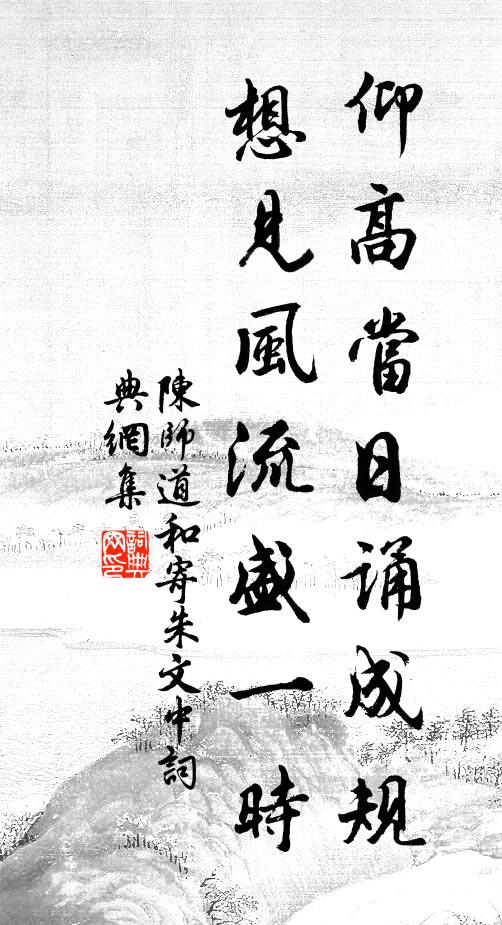 仰高當日誦成規
想見風流盛一時
陳師道和寄朱文中詞
典網集
詞典網印